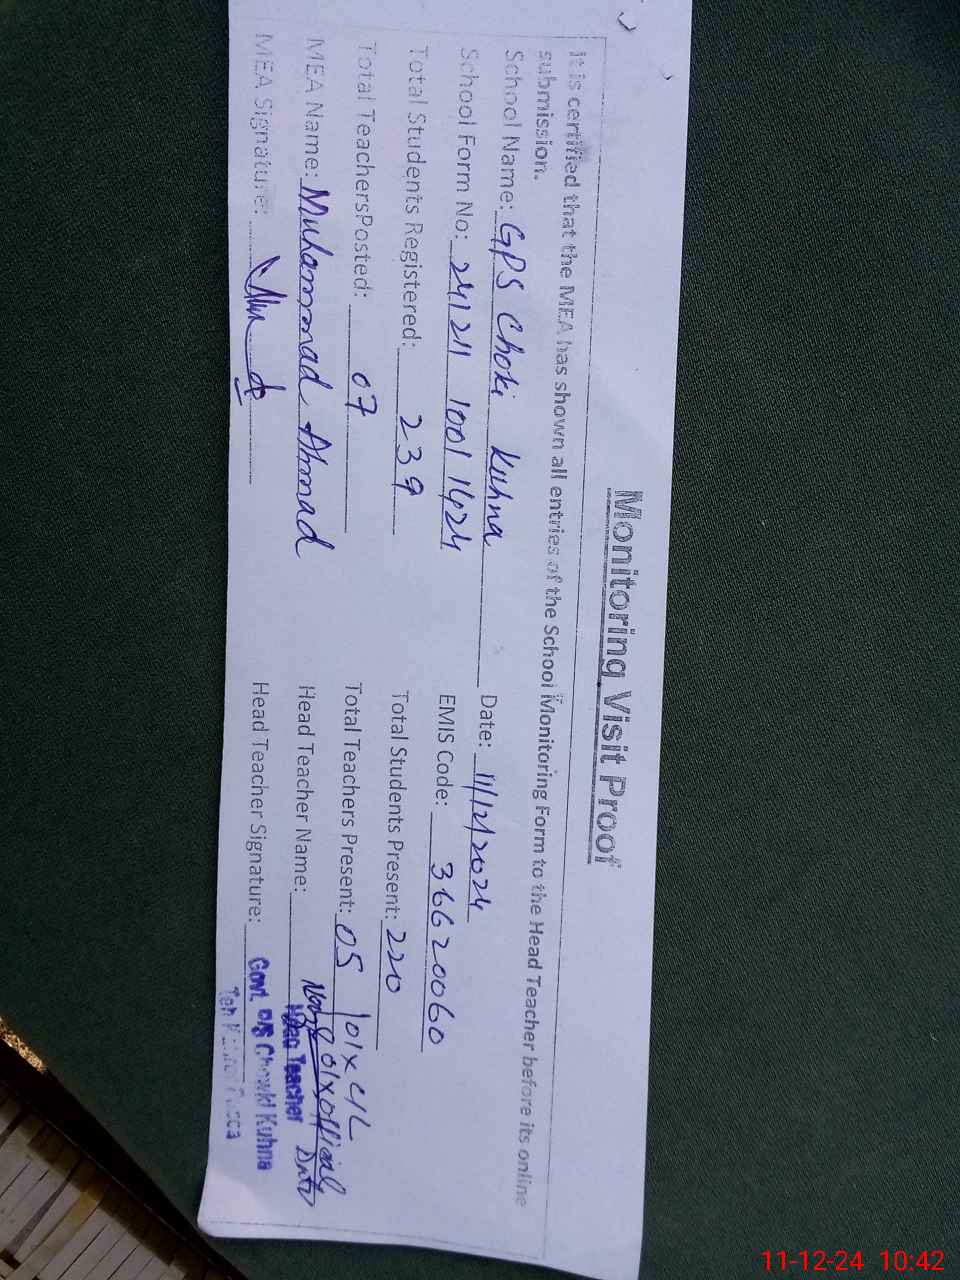 Monitoring Visit Proof
It is certified that the MEA has shown all entries of the School Monitoring Form to the Head Teacher before its online
submission.
School Name: GPS Choki Kuhna Date: 11/12/2024
School Form No: 24124 10011424 EMIS Code: 36620060
Total Students Registered: 239 Total Students Present: 220
Total TeachersPosted: 07 Total Teachers Present: 05 / 01x C/L
01x Official Duty
MEA Name: Muhammad Ahmad Head Teacher Name:
Head Teacher
MEA Signature: Head Teacher Signature:
Govt. P/S Chowki Kuhna
Teh
11-12-24 10:42